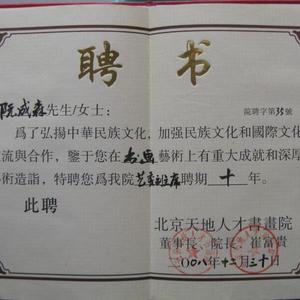 聘书
阮成森先生/女士:
院聘字第35號
爲了弘揚中華民族文化,加强民族文化和國際文化
流與合作,鑒于您在书画藝術上有重大成就和深厚
術造詣,特聘您爲我院艺委副主席聘期十年。
此聘
北京天地人才書畫院
董事長、院長:崔富貴
二00八年十二月三十日